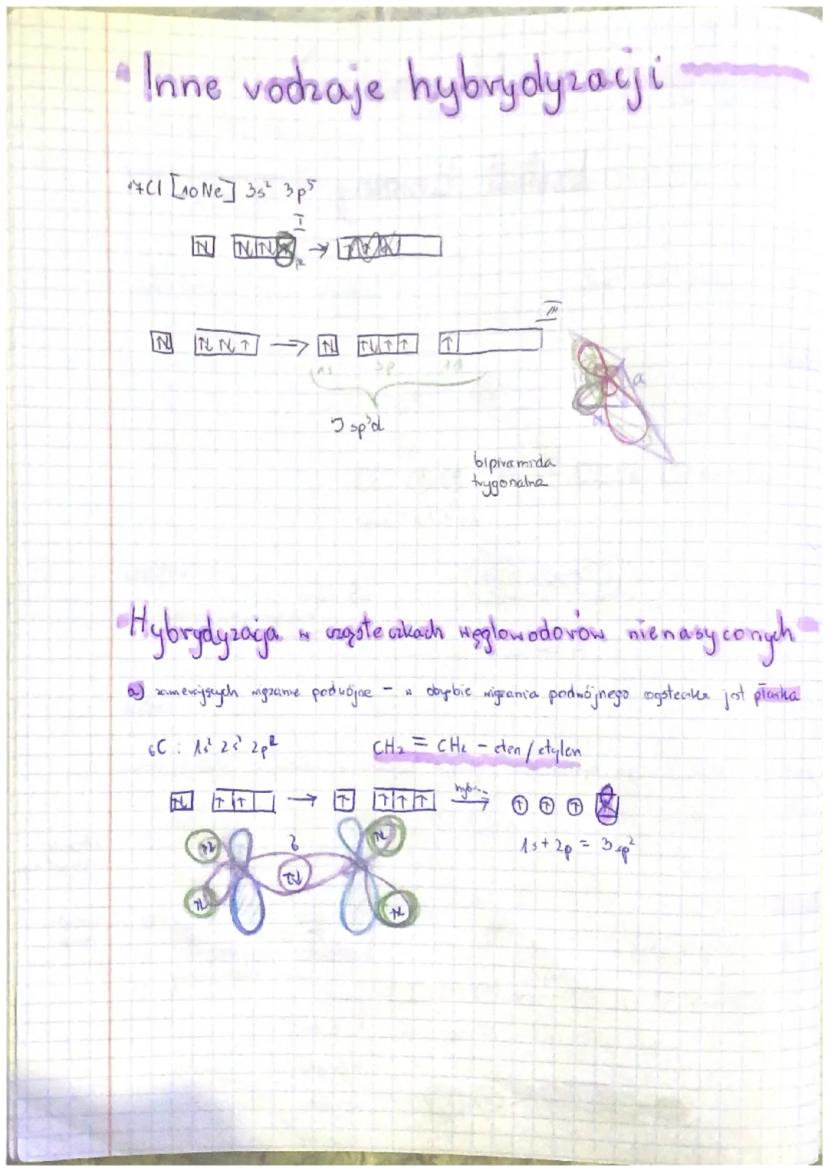 Inne rodzaje hybrydyzacji
17Cl [10Ne] 3s² 3p⁵
I
II
3p
5 sp³d
bipiramida
trygonalna
Hybrydyzacja w cząsteczkach węglowodorów nienasyconych
a) zawierających wiązanie podwójne – w obrębie wiązania podwójnego cząsteczka jest płaska
6C : 1s² 2s² 2p² CH2 = CH2 – eten / etylen
hybr.
1s + 2p = 3 sp²